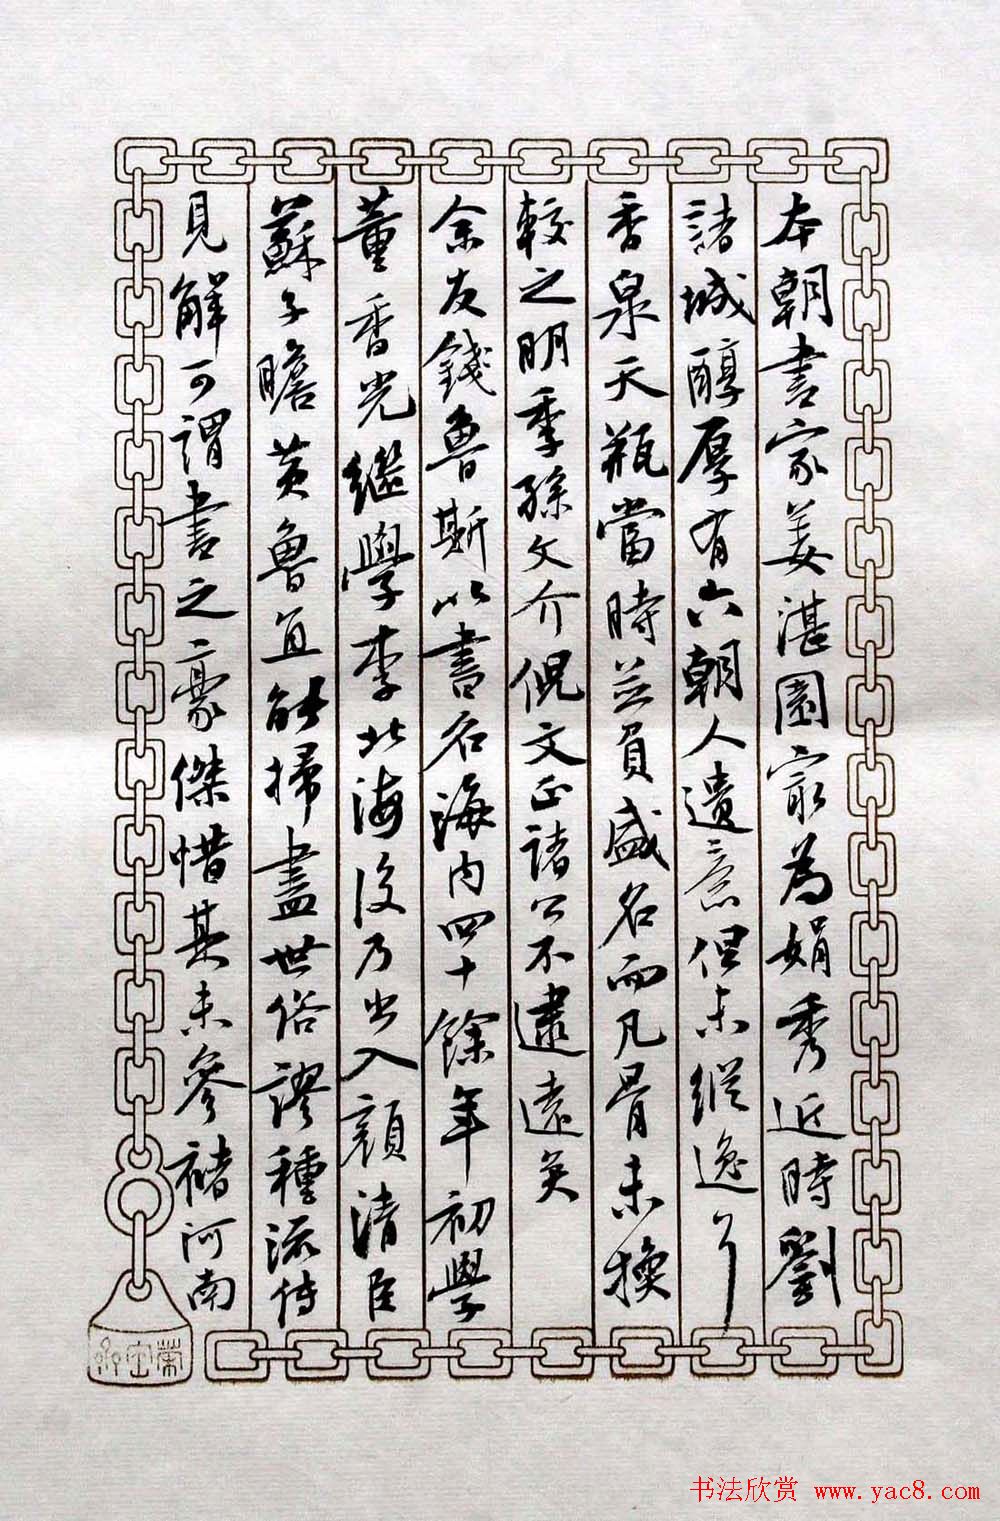 本朝書家姜湛園寂為娟秀近時劉
諸城醇厚有六朝人遺意但未縱逸耳
香泉天瓶當時並負盛名而凡骨未換
較之明季孫文介倪文正諸公不逮遠矣
余友錢魯斯以書名海内四十餘年初學
董香光繼學李北海後乃出入顏清臣
蘇子瞻黃魯直能掃盡世俗謬種流傳
見解可謂書之豪傑惜其未參褚河南
榮寶齋
书法欣赏 www.yac8.com